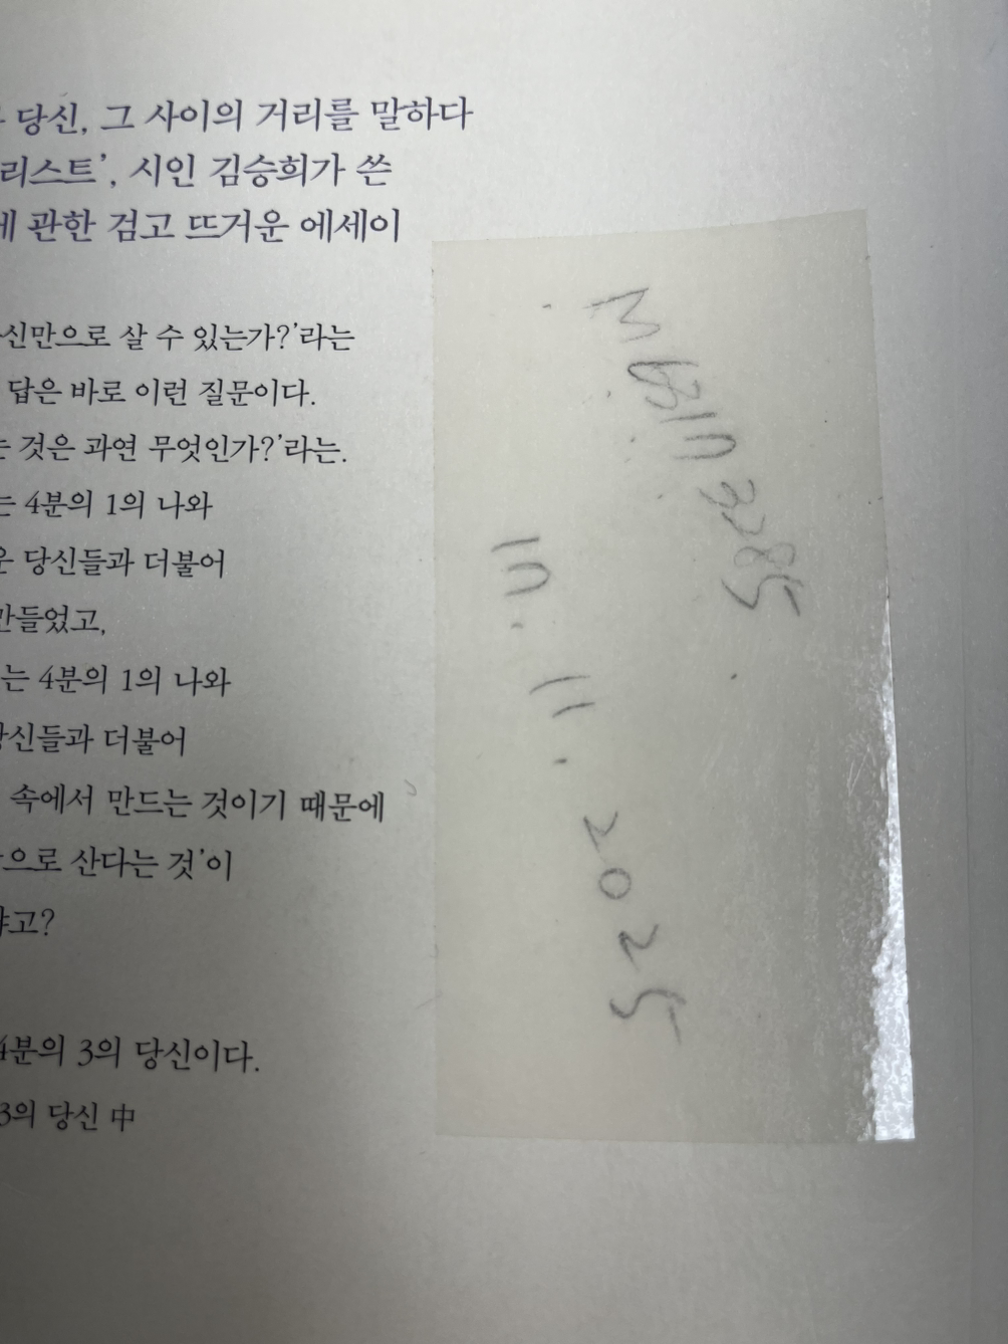 당신, 그 사이의 거리를 말하다
리스트', 시인 김승희가 쓴
관한 검고 뜨거운 에세이
신만으로 살 수 있는가?'라는
답은 바로 이런 질문이다.
것은 과연 무엇인가?'라는.
는 4분의 1의 나와
당신들과 더불어
만들었고,
는 4분의 1의 나와
당신들과 더불어
속에서 만드는 것이기 때문에
으로 산다는 것'이
냐고?
4분의 3의 당신이다.
3의 당신 中
M6310 3285
10. 11. 2025